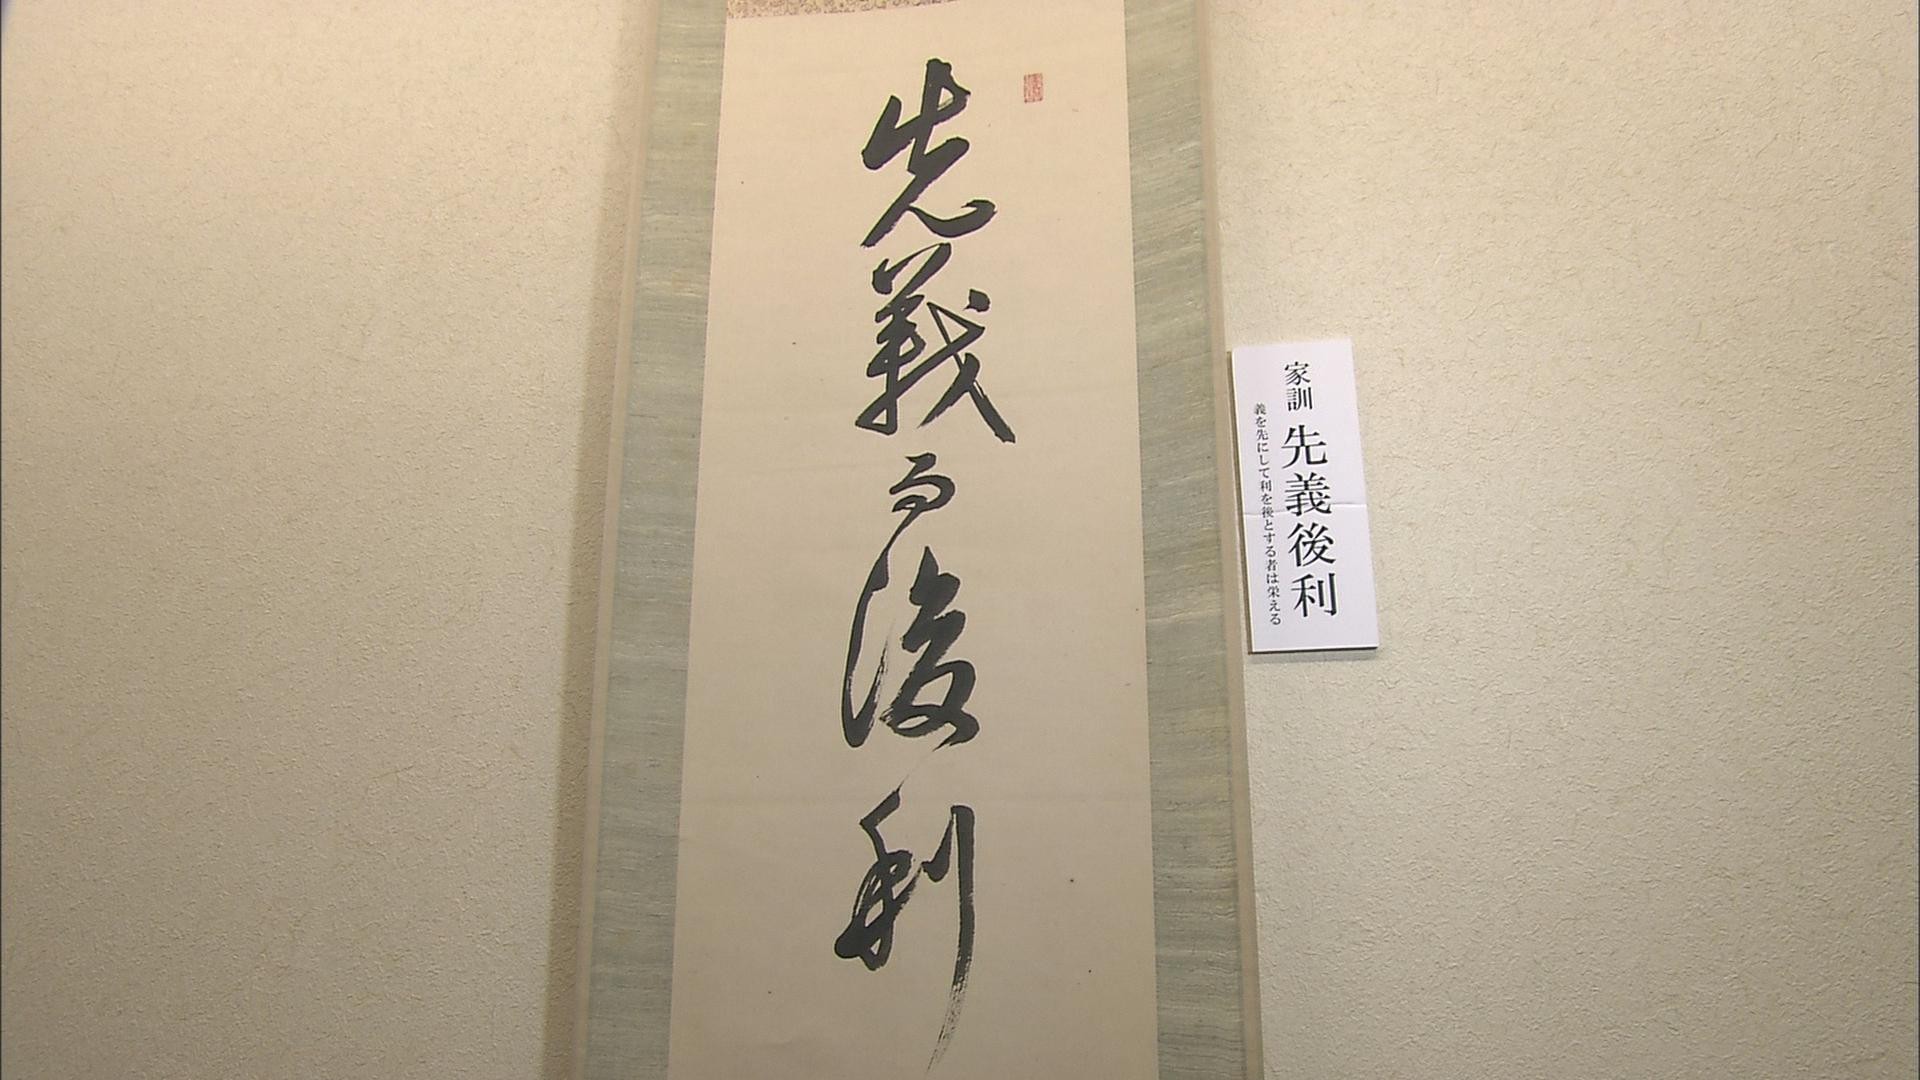 先義而後利
家訓 先義後利
義を先にして利を後とする者は栄える